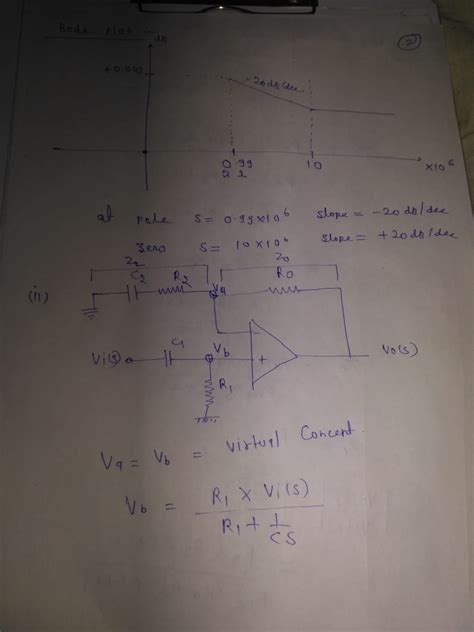 Bode Plot :-
②
dB
+0.043
-20dB/dec
0.99
≈ 1
10
×10⁶
at Pole S = 0.99×10⁶ slope = -20 dB/dec
zero S = 10×10⁶ slope = +20dB/dec
Z₂ Z₀
C₂ R₂ Va R₀
(ii)
Vi(S) C₁ Vb - + Vo(s)
R₁
Va = Vb = Virtual Concent.
Vb = R₁ × Vi(s)
R₁ + 1/CS